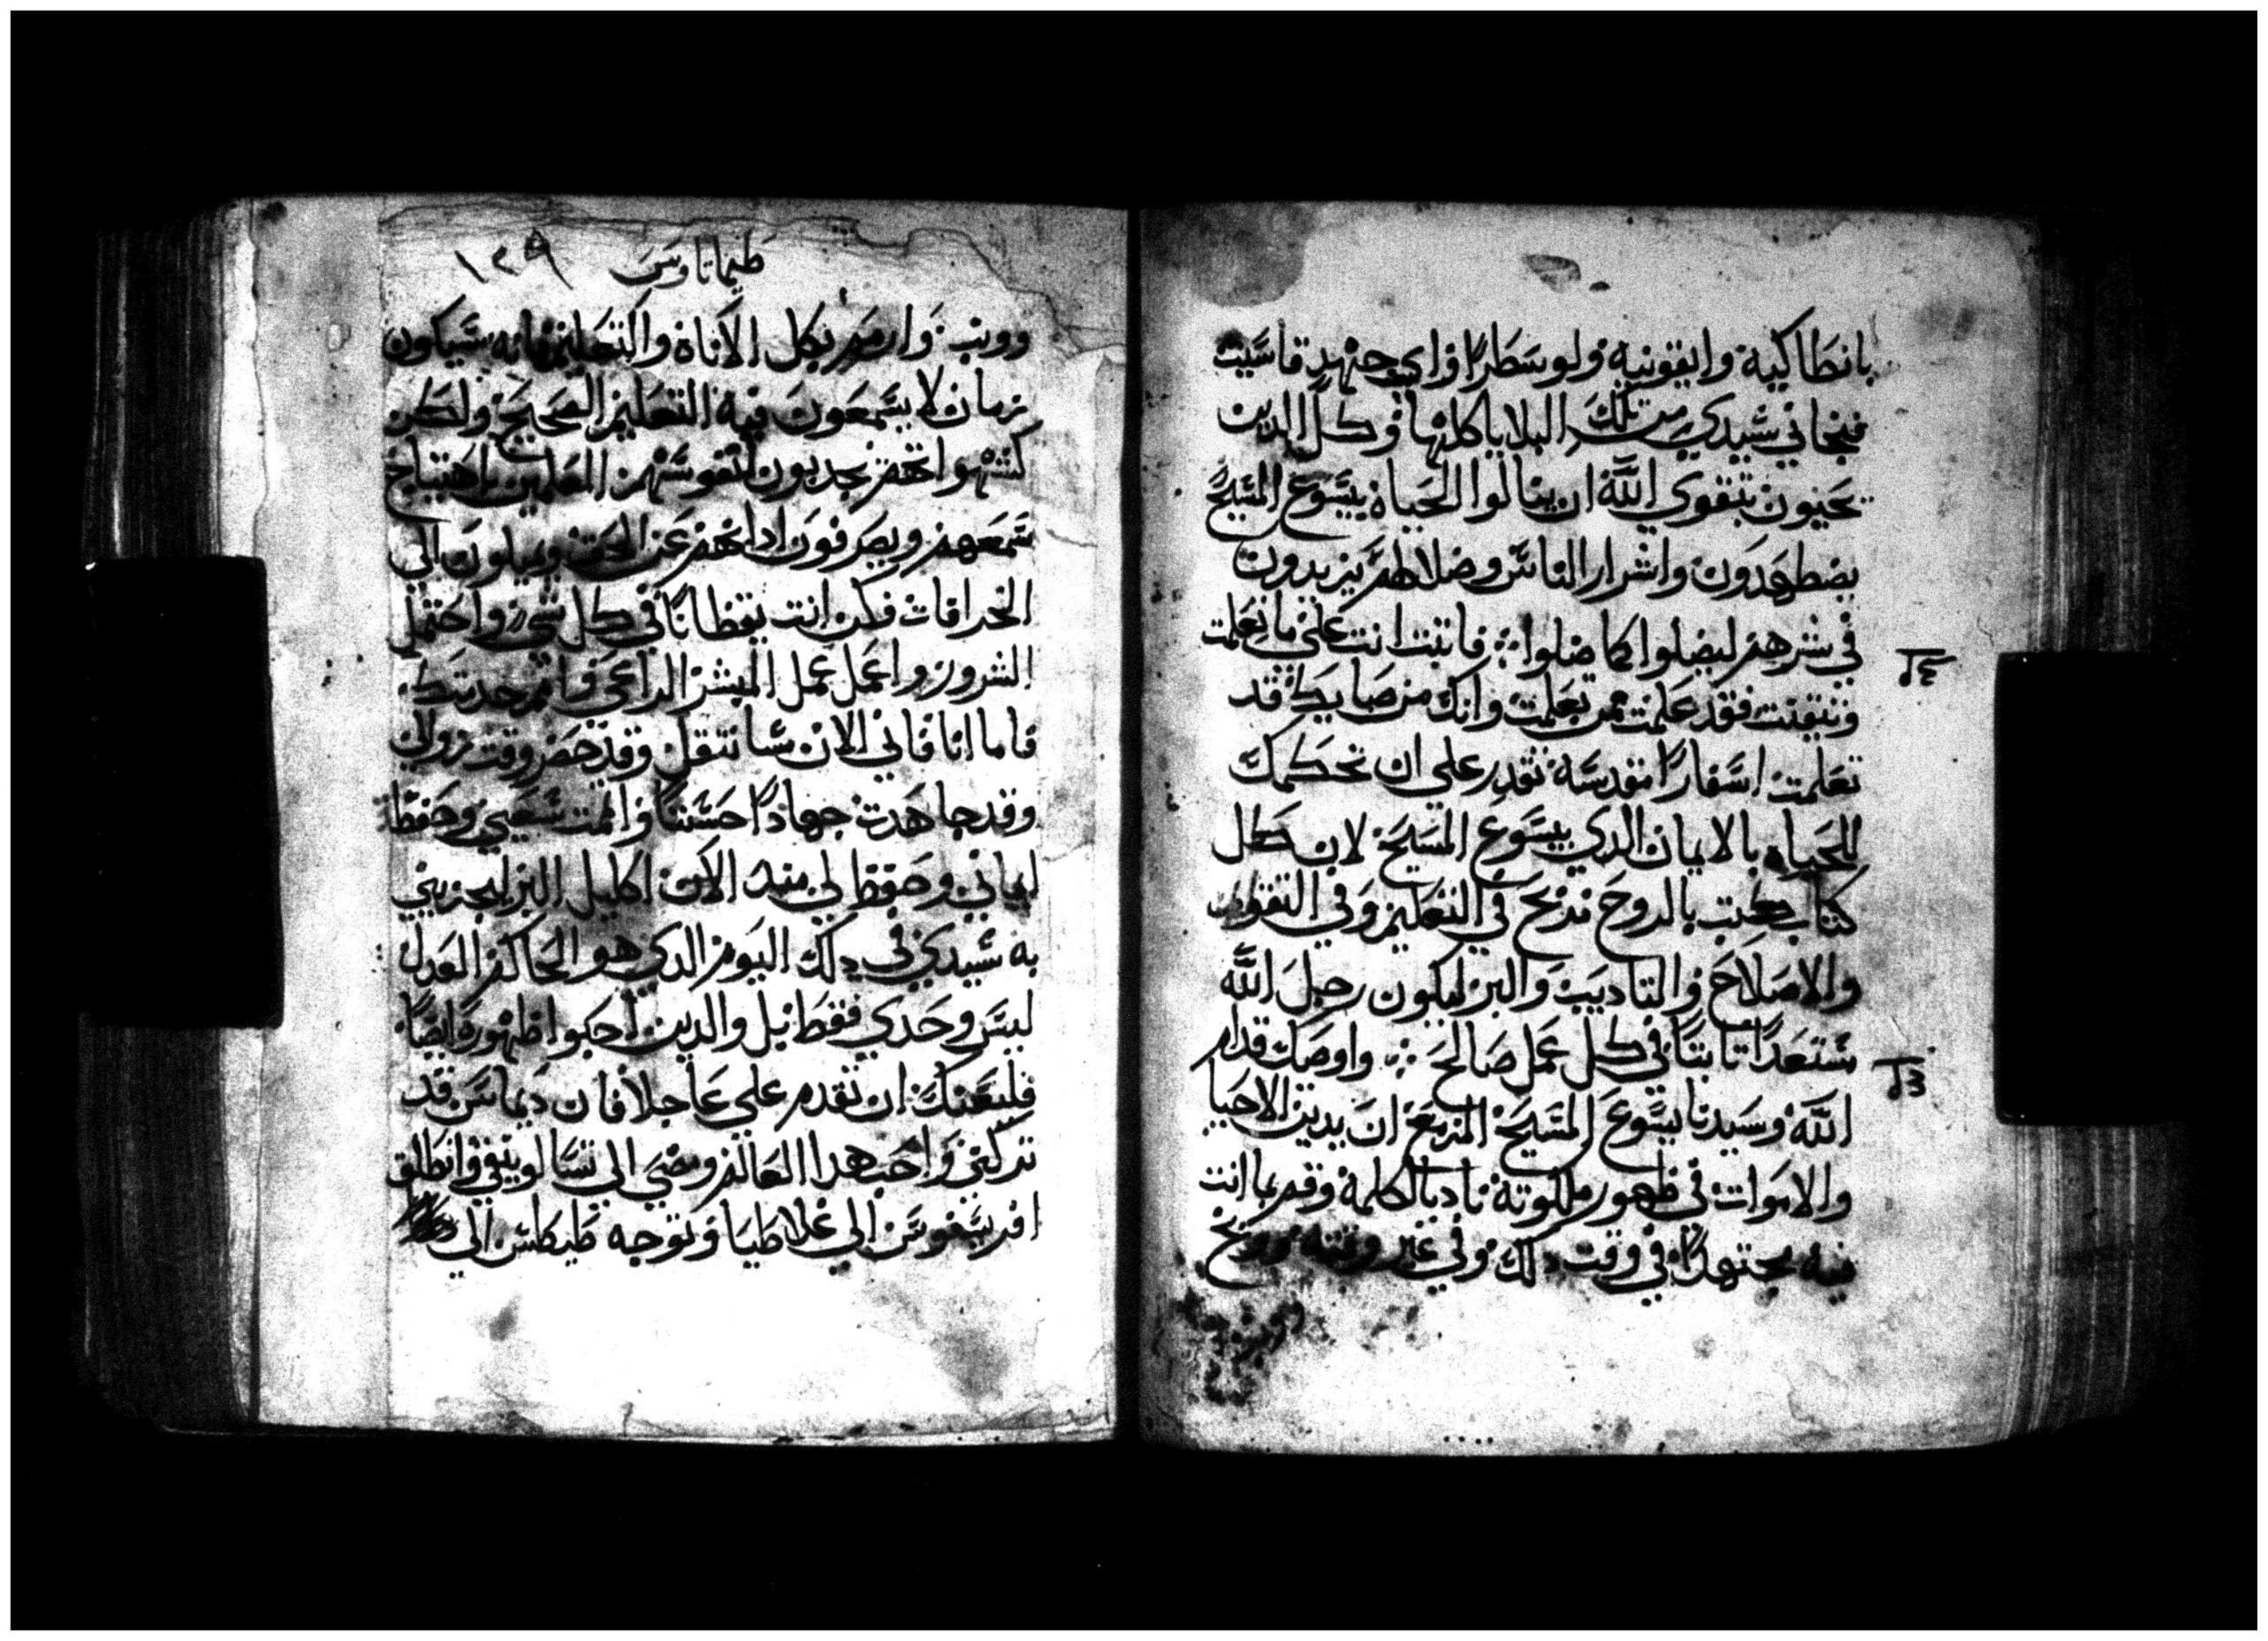 بانطاكية وايقونيه ولوسطرا واي جهد قاسيت
فنجاني سيدي من تلك البلايا كلها وكل الدين
يحيون بتقوي الله ان ينالوا الحياه بيسوع المسيح
يضطهدون واشرار الناس وضلالهم يزيدون
في شرهم ليضلوا كما ضلوا فاتبت انت علي ما تعلمت
وتيقنت فقد علمت ممن تعلمت وانك من صبايك قد
تعلمت اسفارا مقدسه تقدر علي ان تحكمك
للحياه بالايمان الدي بيسوع المسيح لان كل
كتاب كتب بالروح مربح في التعليم وفي التقويم
والاصلاح والتاديب والبر ليكون رجل الله
مستعدا تابتا في كل عمل صالح واوصك قدام
الله وسيدنا يسوع المسيح المزمع ان يدين الاحيا
والاموات في ظهور ملكوته ناد بالكلمة وقم بما انت
فيه مجتهدا في وقت دلك وفي غير وقته ووبخ
طيماتاوس ١٢٩
ووبب وارسم بكل الاناة والتعليم فانه سيكون
زمان لا يسمعون فيه التعليم الصحيح ولكن
كشهواتهم يجدبون لنفوسهم المعلمين باهتياج
سمعهم ويصرفون ادانهم عن الحق ويميلون الي
الخرافات فكن انت يقظانا في كل شي واحتمل
الشرور واعمل عمل المبشر الداعي واتمم خدمتك
فاما انا فاني الان سانتقل وقد حضر وقت زوالي
وقد جاهدت جهادا حسنا واتممت سعيي وحفظت
ايماني وحفظ لي مند الان اكليل البر ليجزيني
به سيدي في دلك اليوم الدي هو الحاكم العدل
ليس وحدي فقط بل والدين احبوا ظهوره ايضا
فليعنك ان تقدم علي عاجلا فان ديماس قد
تركني واحب هدا العالم ومضي الي تسالونيقي وانطلق
اقريسقوس الي غلاطيا وتوجه طيطس الي